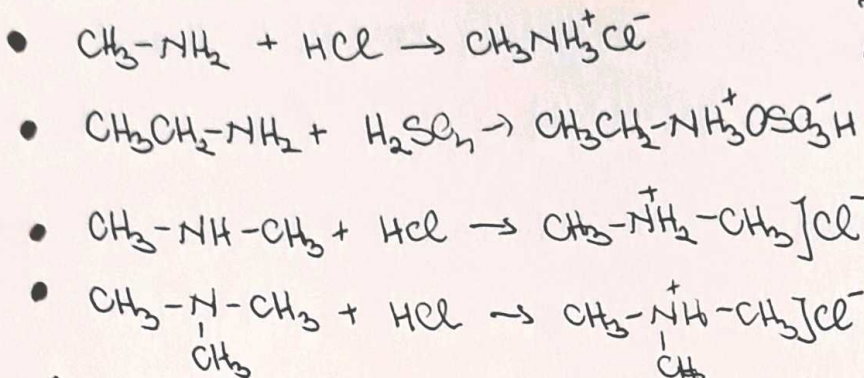 • CH₃-NH₂ + HCl → CH₃NH₃⁺Cl⁻
• CH₃CH₂-NH₂ + H₂SO₄ → CH₃CH₂-NH₃⁺OSO₃⁻H
• CH₃-NH-CH₃ + HCl → CH₃-N⁺H₂-CH₃]Cl⁻
• CH₃-N-CH₃ + HCl → CH₃-N⁺H-CH₃]Cl⁻
CH₃ CH₃